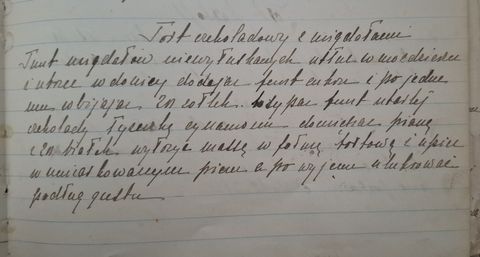 Tort czekoladowy z migdołami
Funt migdałów niewyłuskanych utłuc w moździeżu
i utrzec w donicy dodając funt cukru i po jedne
mu wbijając 20 żółtek. wsypac funt utartej
czekolady łyżeczkę cynamonu domieszac pianę
z 20 białek wyłożyc massę w formę tortową i upiec
w umiarkowanym piecu a po wyjęciu ulukrować
podług gustu